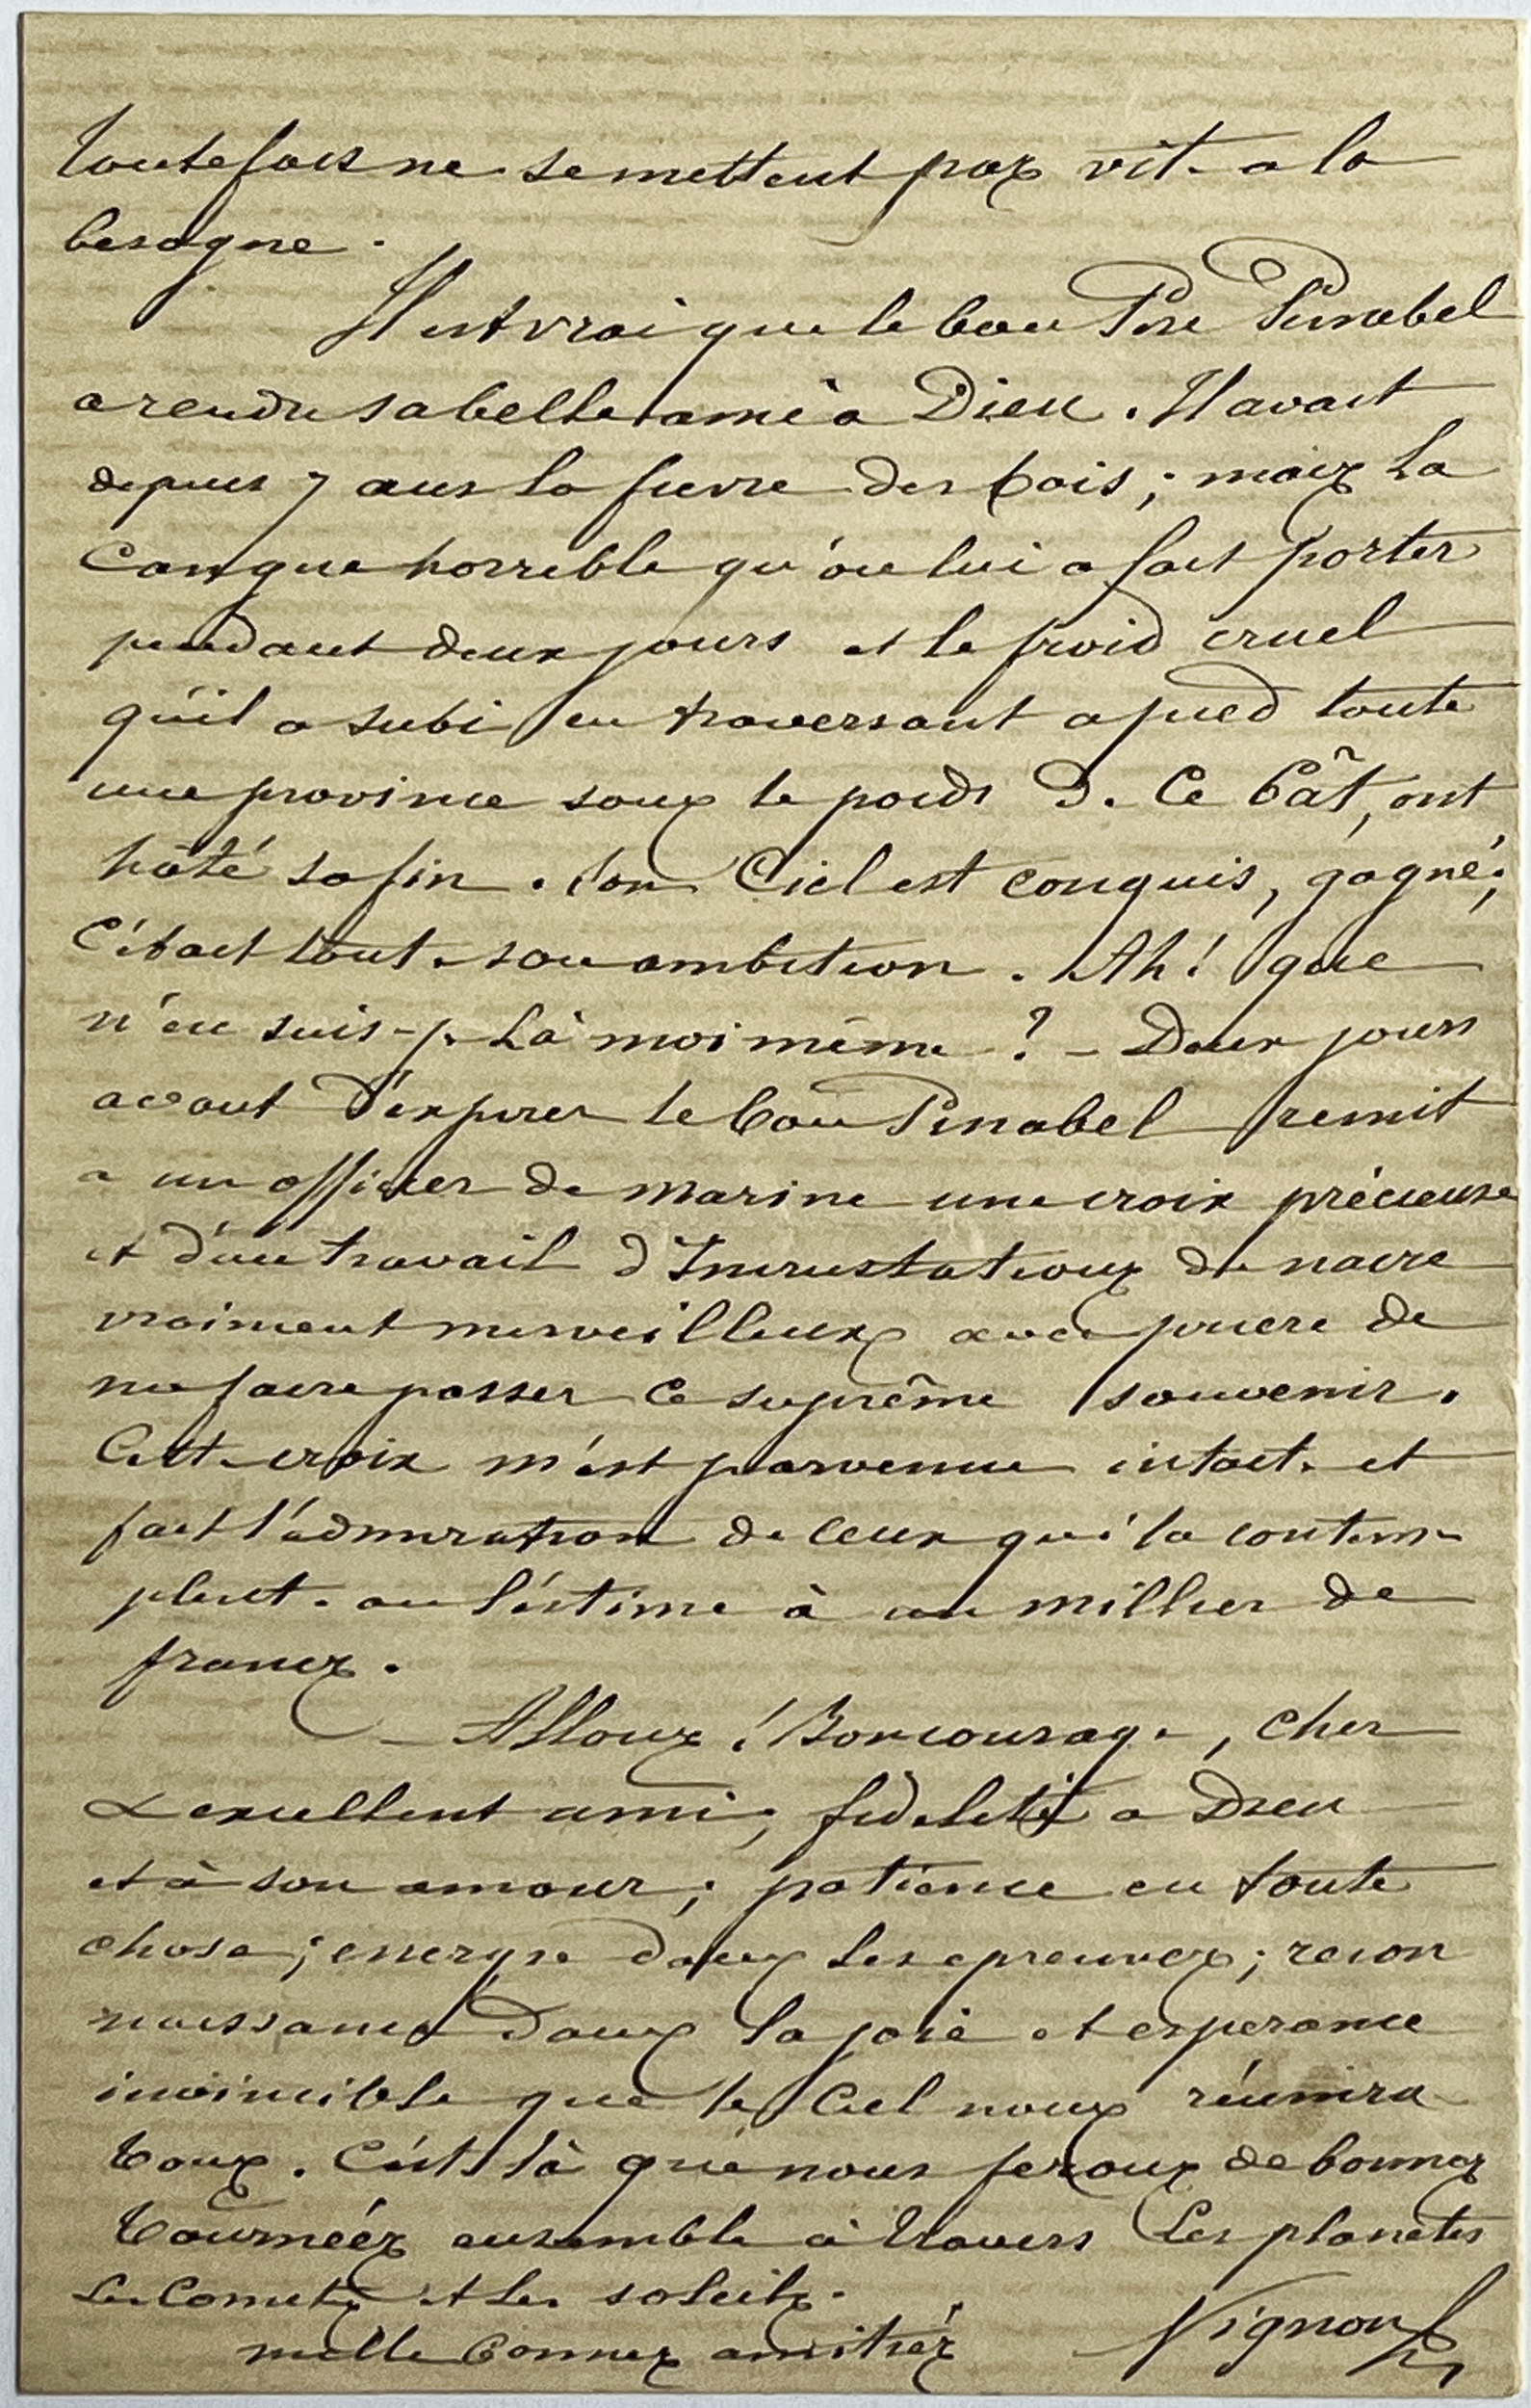 toutefois ne se mettent pas vite a la
besogne.
Il est vrai que le bon Père Pinabel
a rendu sa belle ame à Dieu. Il avait
depuis 7 ans la fievre des bois; mais la
cangue horrible qu'on lui a fait porter
pendant deux jours et le froid cruel
qu'il a subi en traversant a pied toute
une province sous le poids de ce bât, ont
hâté sa fin. Son Ciel est conquis, gagné;
C'était toute son ambition. Ah! que
n'en suis-je là moi même? - Deux jours
avant d'expirer le bon Pinabel remit
a un officier de marine une croix précieuse
et d'un travail d'Incrustations de nacre
vraiment merveilleux avec priere de
me faire passer ce suprême souvenir.
Cette croix m'est parvenue intacte et
fait l'admiration de ceux qui la contem-
plent. on l'estime à un millier de
francs.
- Allons! Bon courage, cher
& excellent ami; fidelité a Dieu
et à son amour; patience en toute
chose; energie dans les epreuves; recon
naissance dans la joie et esperance
invincible que le Ciel nous réunira
tous. C'est là que nous ferons de bonnes
tournéés ensemble à travers les planetes
les Cometes et les soleils.
mille bonnes amitiés Vignon